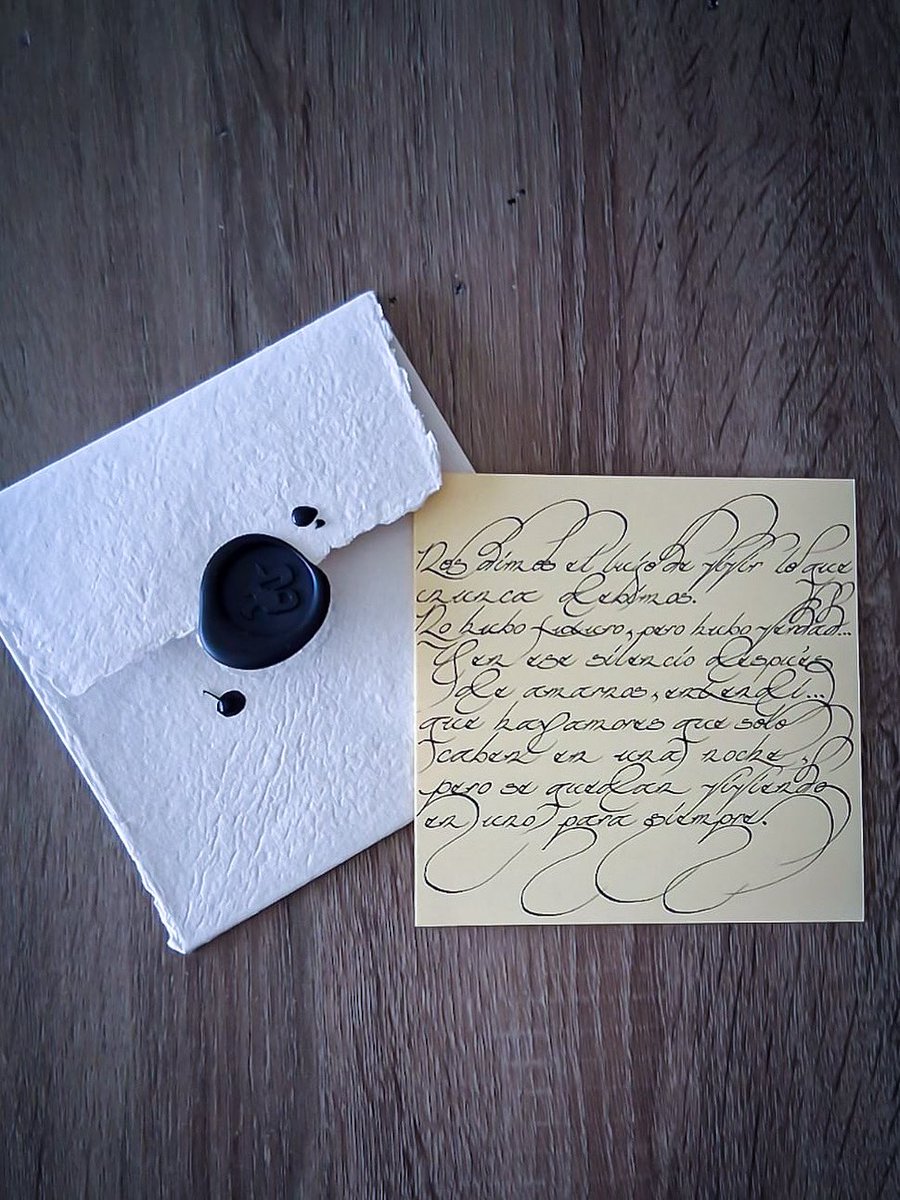 Nos dimos el lujo de vivir lo que
nunca debimos.
No hubo futuro, pero hubo verdad...
Y en ese silencio después
de amarnos, entendí...
que hay amores que sólo
caben en una noche,
pero se quedan viviendo
en uno para siempre.